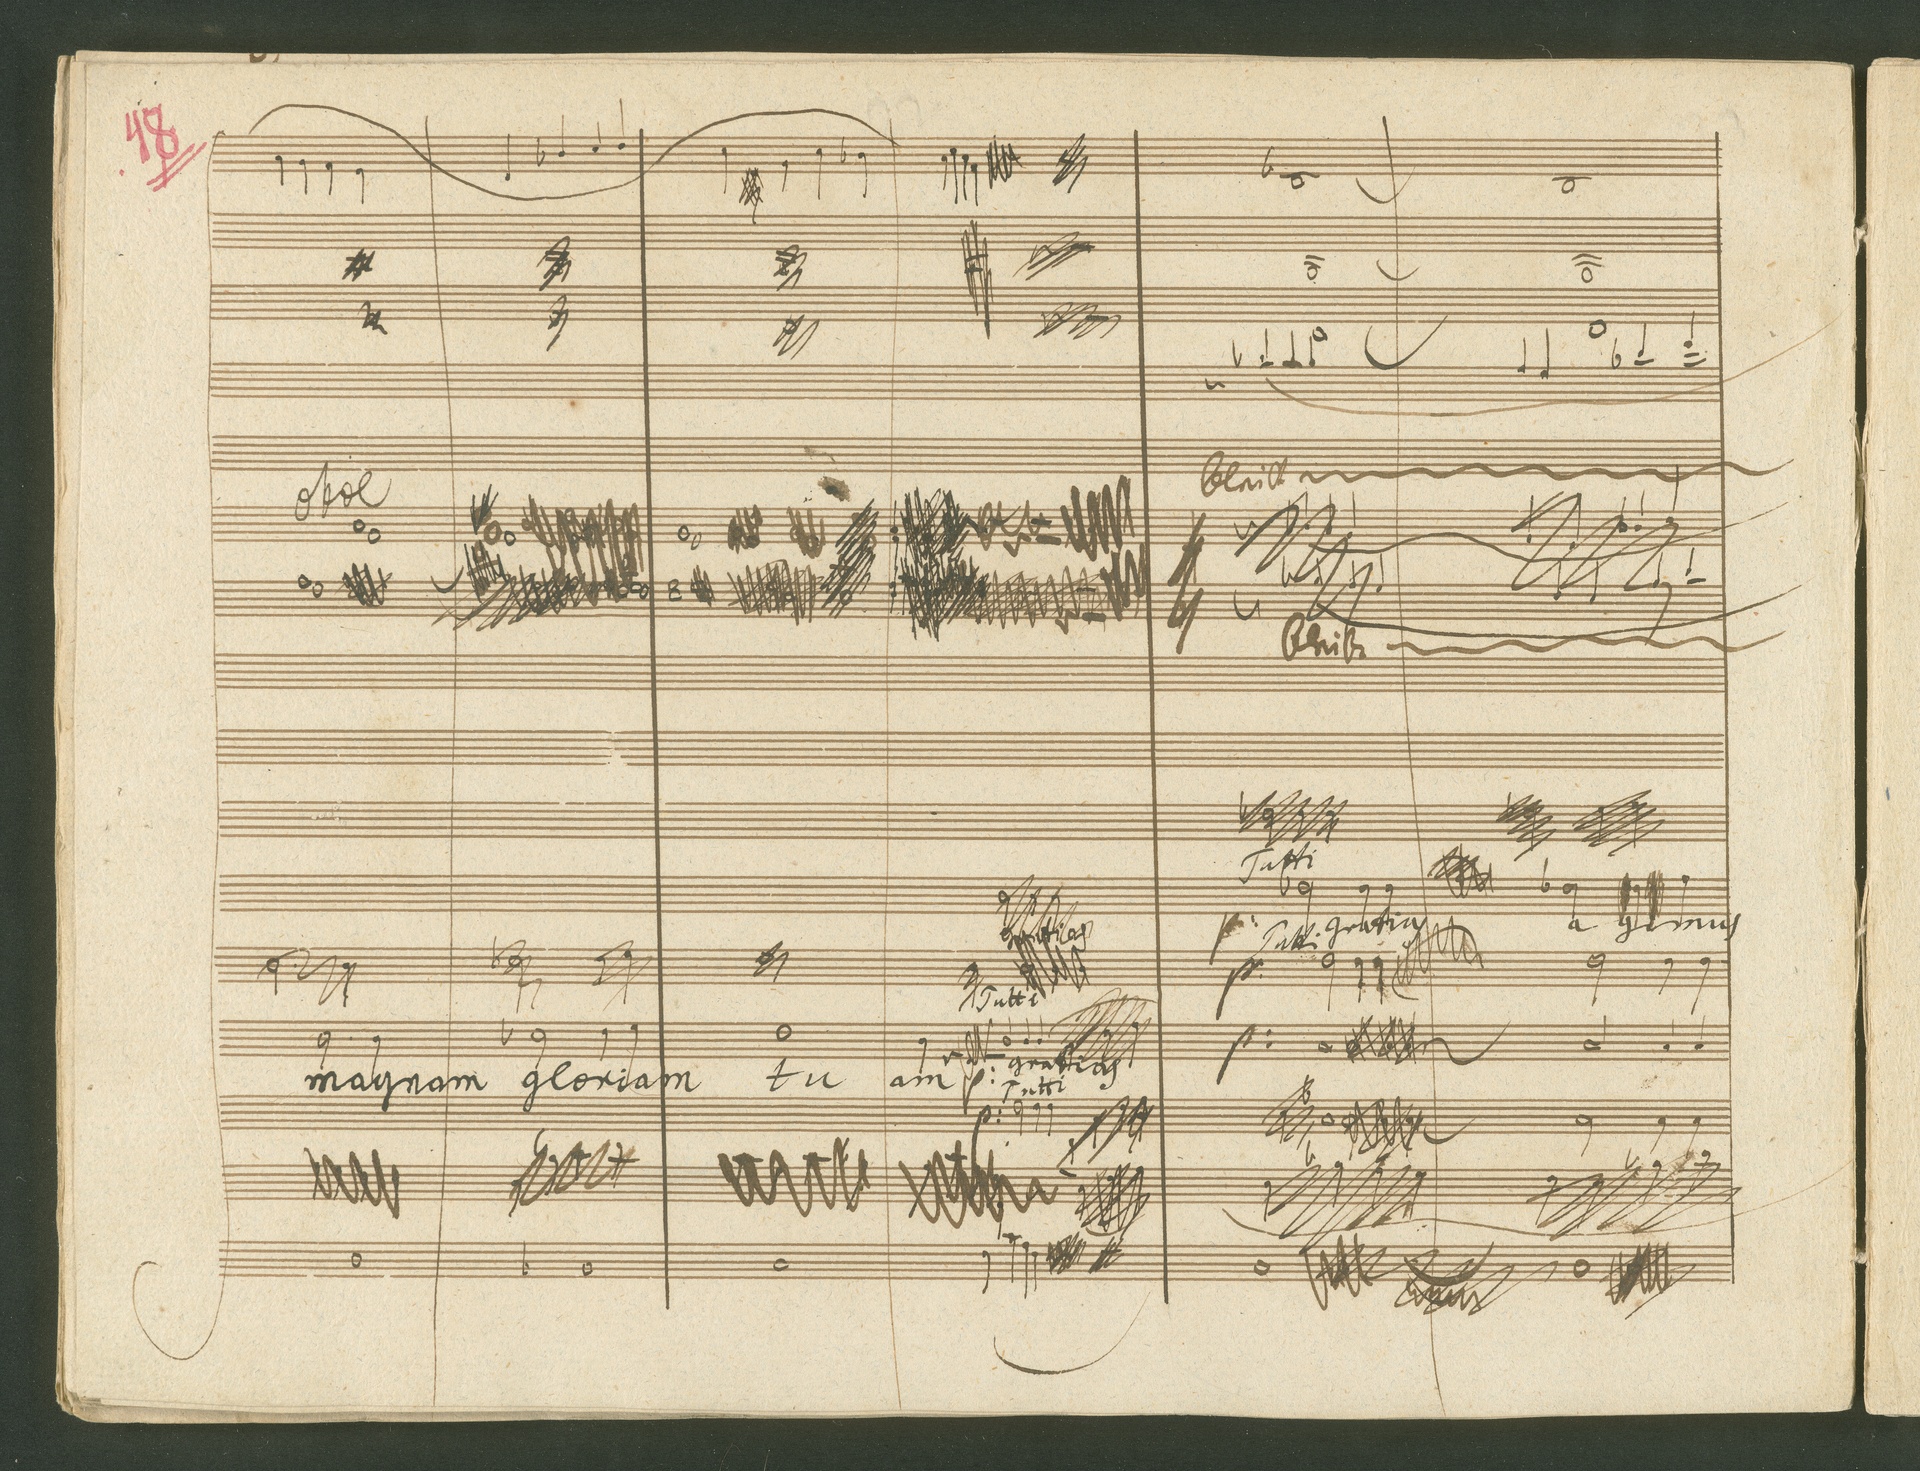 48
oboe
bleibt
bleibt
Tutti
gratias
p: gratias a gimus
Tutti
p:
Tutti
p:
magnam gloriam tu am p: gratias
Tutti
p: